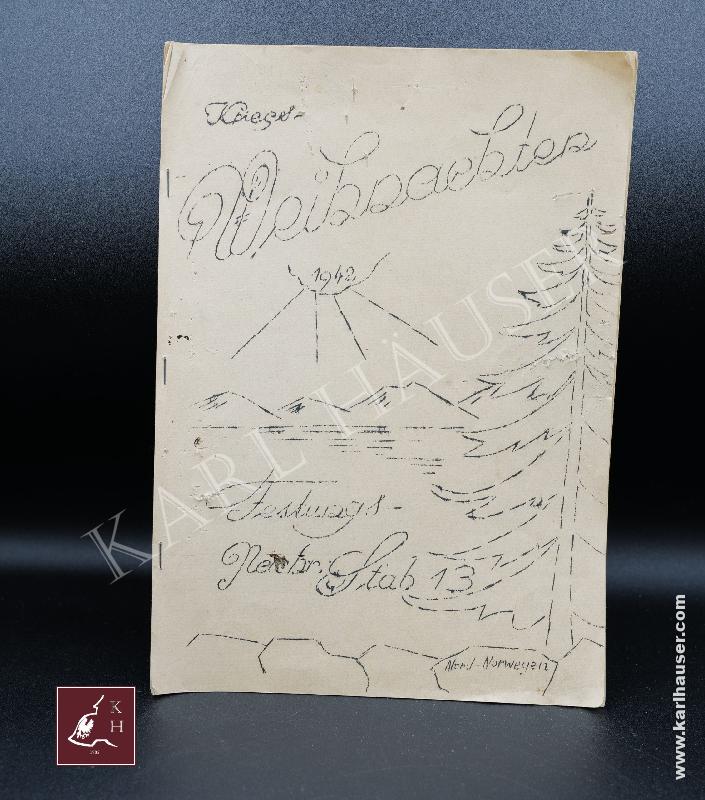 Kriegs-
Weihnachten
1942
Festungs-
Nachr. Stab 13
Nord-Norwegen
KARL HÄUSER
K
H
www.karlhauser.com